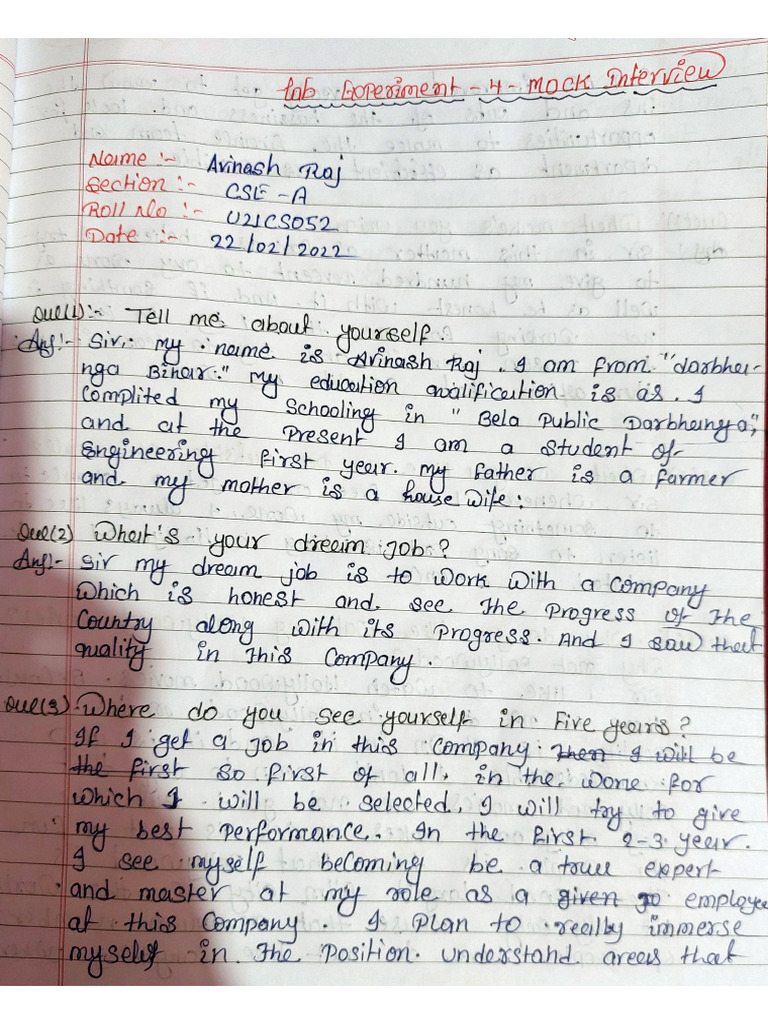 Lab Experiment - 4 - Mock Interview
Name :- Avinash Raj
Section :- CSE - A
Roll No :- U21CS052
Date :- 22/02/2022
Que(1):- Tell me about yourself.
Ans:- Sir. my name is Avinash Raj. I am from "darbha-
nga Bihar." my education qualification is as. I
Complited my Schooling in "Bela Public Darbhanga",
and at the Present I am a student of
Engineering first year. my father is a farmer
and my mother is a house wife.
Que(2) What's your dream Job.?
Ans:- Sir my dream job is to work with a company
which is honest and see the Progress of the
Country along with its Progress. And I saw that
quality in this Company.
Que(3) Where do you see yourself in Five years?
If I get a Job in this Company. Then I will be
the first so first of all, in the wone for
which I will be selected, I will try to give
my best performance. In the first 2-3 year.
I see myself becoming be a true expert
and master at my role as a given to employee
at this Company. I Plan to really immerse
myself in the Position. understand areas that